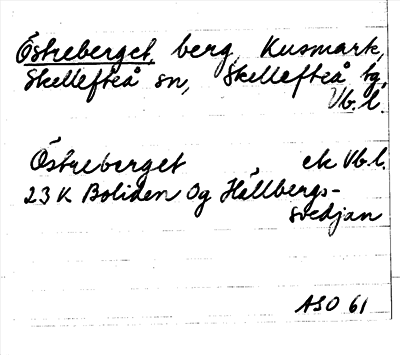 Östreberget, berg, Kusmark,
Skellefteå sn, Skellefteå tg,
Vb. l.
Östreberget ek Vb. l.
23 K Boliden Og Hällbergs-
svedjan
ASO 61